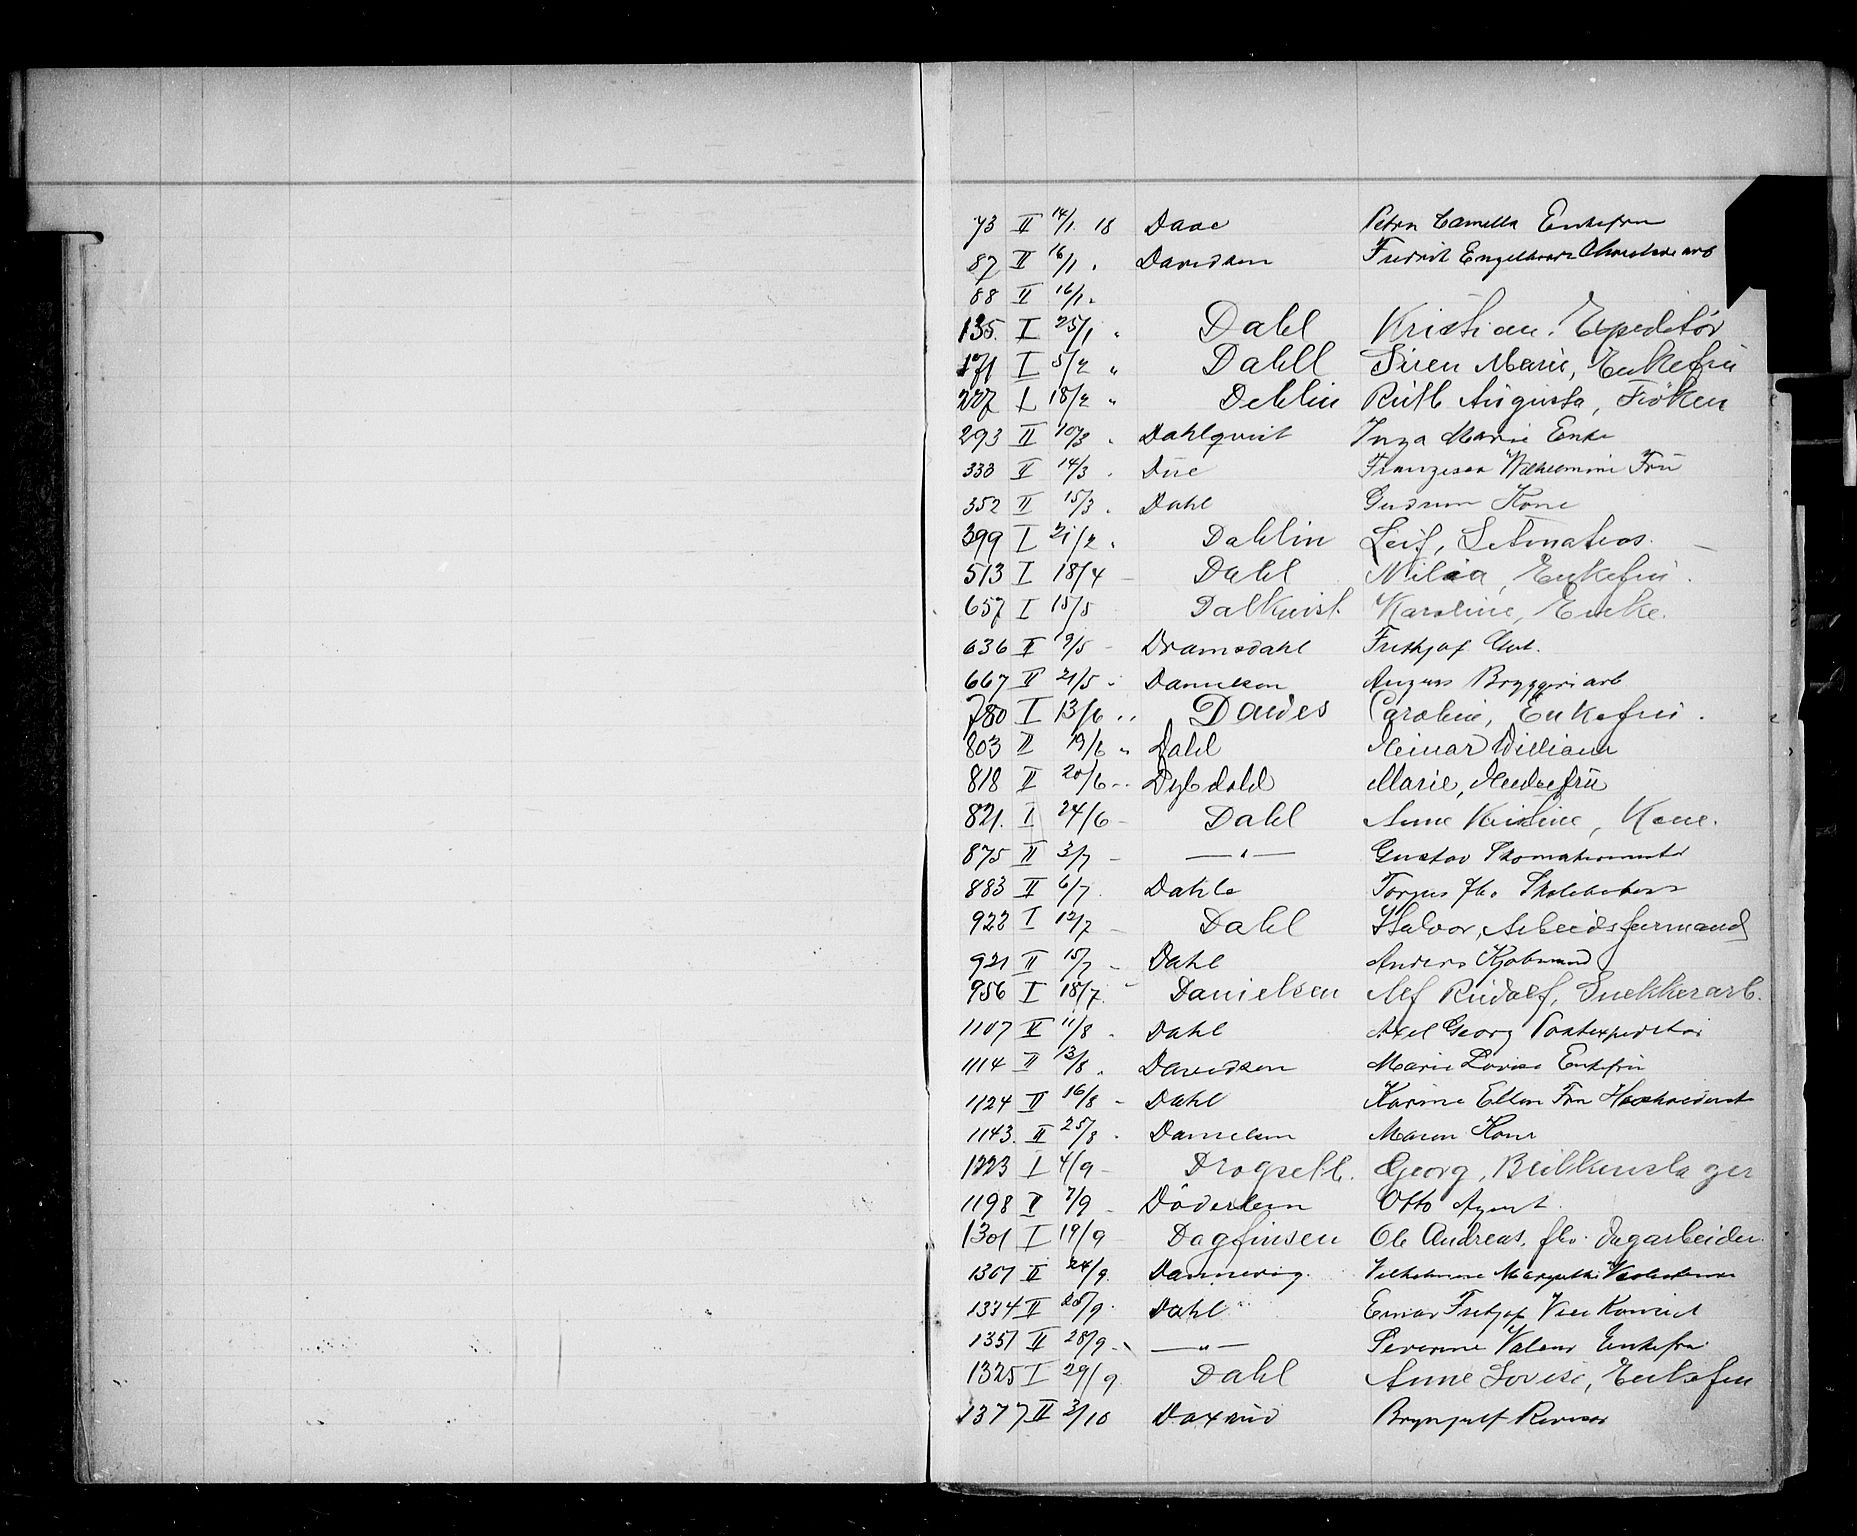 73 II 14/1. 18 Daae Petra Camella Enkefru
87 II 16/1 „ Davidsen Fredrik Engelhardt arb
88 II 16/1 „
135. I 25/1 „ Dahl Kristian. Expeditør
171 I 5/2 „ Dahll Siren Marie, Enkefru
227 I 18/2 „ Dehlin Ruth Augusta, Frøken
293 II 10/3 „ Dahlqvist Inga Marie Enke
333 II 14/3 „ Due Franzisca Wilhelmine Fru
352 II 15/3 „ Dahl Gudrun Kone
399 I 21/2 „ Dahlin Leif,
513 I 18/4 – Dahl Enkefru.
657 I 15/5 Dalkvist Karoline, Enke.
636 II 9/5 - Dramsdahl Frithjof
667 II 21/5 „ Danielsen August Bryggeriarb
780 I 13/6 „ Caroline, Enkefru.
803 II 19/6 „ Dahl Einar William
818 II 20/6 - Dybdahl Marie,
821. I 24/6 - Dahl Anne Kristine, Kone.
875 II 3/7 - — „ — Gustav Skomakermester
883 II 6/7. Dahle Torgus fhv.
922 I 12/7 - Dahl Halvor, Arbeidsformand
921 II 15/7 - Dahl Anders Kjøbmand
956 I 18/7. Danielsen Alf Rudolf, Snekkerarb.
1107 II 11/8 „ Dahl Axel Georg Postexpeditør
1114 II 13/8 „ Davidsen Marie Lovise Enkefru
1124 II 16/8 - Dahl Karine Ellen Fru
1143. II 25/8 „ Danielsen Maren Kone
1223 I 4/9 - Drogseth. Georg,
1198 II 7/9 - Döderlein Otto Agent.
1301 I 19/9 - Dagfinsen Ole Andreas, fhv. Dagarbeider.
1307 II 24/9. Dannevig. Vilhelmine Margrethe
1334 II 25/9. Dahl Einar Fritjof
1351 II 28/9 - — „ — Severine Enkefru
1325 I 29/9 Dahl Anne Lovise, Enkefru
1377 II 3/10 Brynjulf Revisor